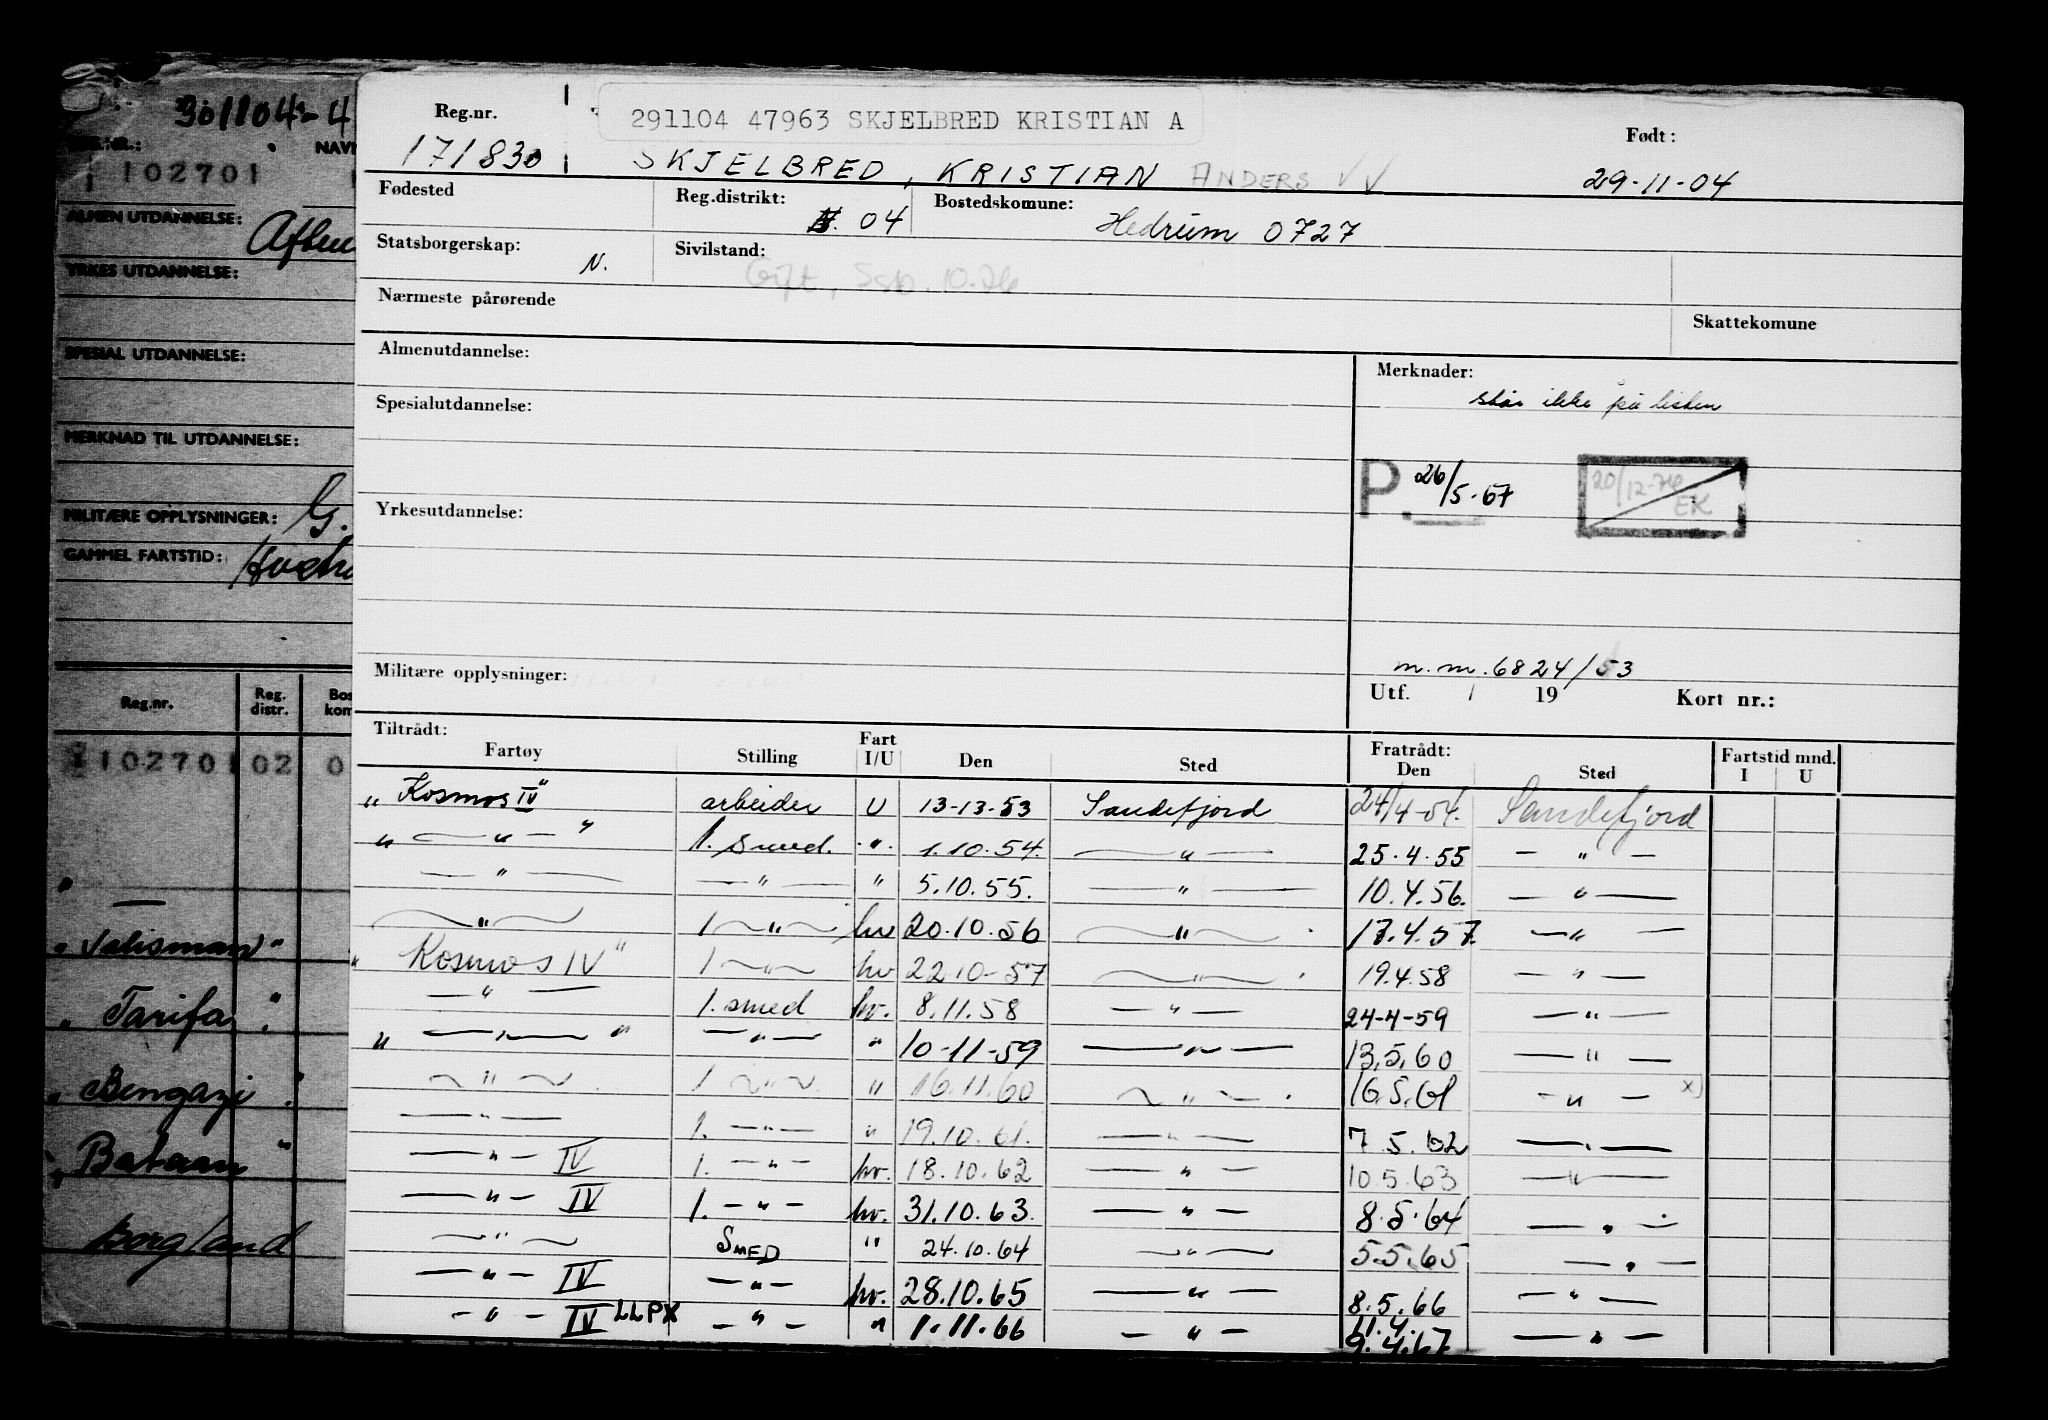 301104-4
NAVN
102701
ALMEN UTDANNELSE:
YRKES UTDANNELSE:
SPESIAL UTDANNELSE:
MERKNAD TIL UTDANNELSE:
MILITÆRE OPPLYSNINGER: G.
GAMMEL FARTSTID:
Reg.nr. Reg. distr.
102701 02 0
"Talisman"
"Tarifa"
"Bengazi"
"Bataan"
Borgland
291104 47963 SKJELBRED KRISTIAN A
Reg.nr. Født:
171830 SKJELBRED, KRISTIAN ANDERS VV 29-11-04
Fødested Reg.distrikt: 04 Bostedskomune: Hedrum 0727
Statsborgerskap: N. Sivilstand: Gift, Ssb. 10.76
Nærmeste pårørende Skattekomune
Almenutdannelse: Merknader:
står ikke på listen
Spesialutdannelse:
P. 26/5-67 20/12-76 EK
Yrkesutdannelse:
m.m. 6824/53
Militære opplysninger: Utf. / 19 Kort nr.:
Tiltrådt: Fartøy Stilling Fart I/U Den Sted Fratrådt: Den Sted Fartstid mnd. I U
"Kosmos IV" arbeider U 13-13-53 Sandefjord 24/4-54. Sandefjord
" — " — " 1. smed. " 1.10.54. — " — 25.4.55 — " —
— " — — " — " 5.10.55. — " — 10.4.56. — " —
— " — 1 — " — hv 20.10.56 — " — 17.4.57. — " —
"Kosmos IV" 1 — " — hv 22.10-57 — " — 19.4.58 — " —
— " — 1. smed hv. 8.11.58 — " — 24-4-59 — " —
" — " — " — " — " 10-11-59 — " — 13.5.60 — " —
— " — 1. — " — " 16.11.60 — " — 16.5.61 — " — x)
— " — 1. — " — " 19.10.61. — " — 7.5.62 — " —
— " — IV 1. — " — hv. 18.10.62 — " — 10.5.63 — " —
— " — IV 1. — " — hv. 31.10.63. — " — 8.5.64 — " —
— " — SMED " 24.10.64 — " — 5.5.65 — " —
— " — IV — " — hv. 28.10.65 — " — 8.5.66 — " —
— " — IV LLPX — " — " 1.11.66 — " — 11.4. 9.4.67 — " —